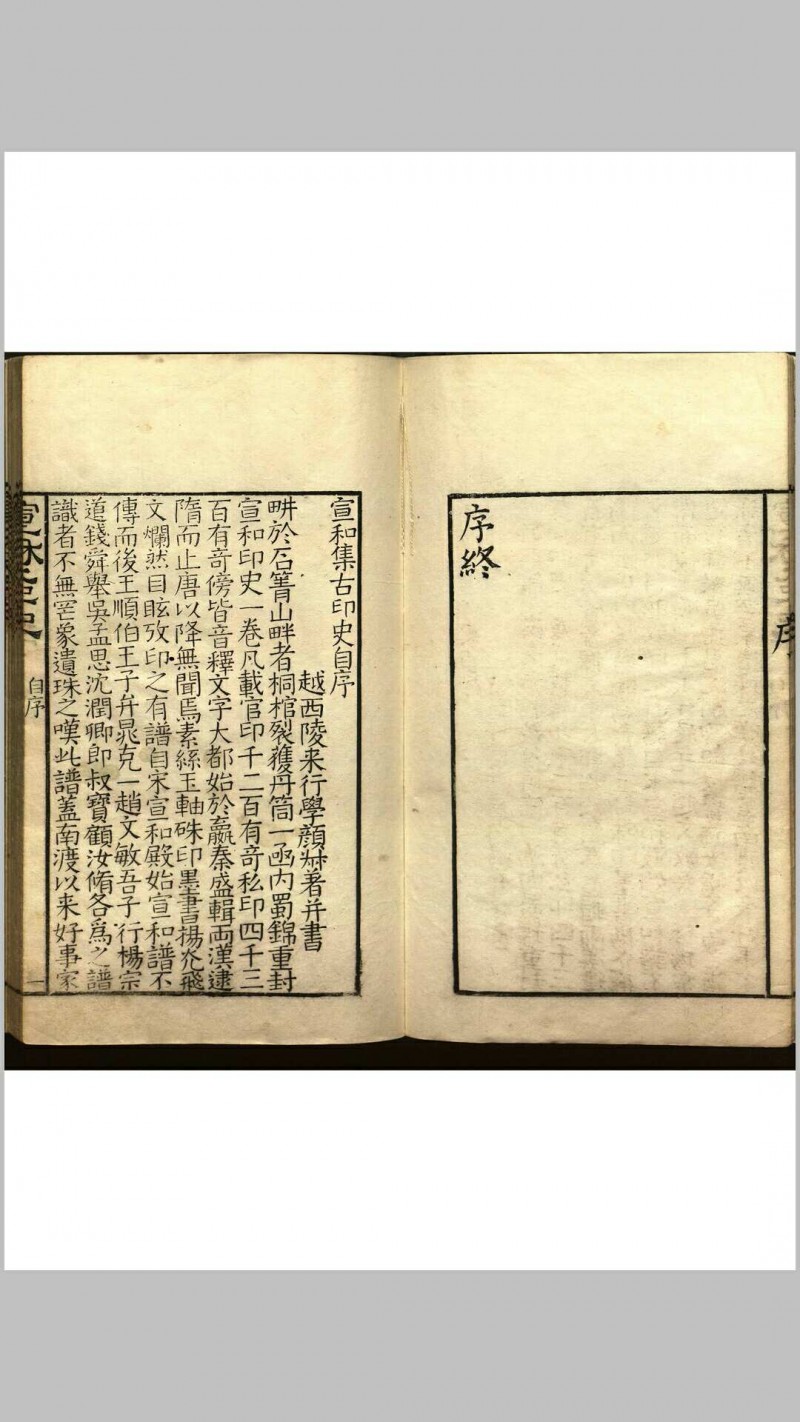 序終
序
宣和集古印史自序
越西陵来行學顏叔著并書
畊於石箐山畔者桐棺裂獲丹筒一函内蜀錦重封
宣和印史一卷凡載官印千二百有奇私印四千三
百有奇傍皆音釋文字大都始於嬴秦盛輯両漢逮
隋而止唐以降無聞焉素絲玉軸硃印墨書揚光飛
文爛然目眩攷印之有譜自宋宣和殿始宣和譜不
傳而後王順伯王子弁晁克一趙文敏吾子行楊宗
道錢舜舉吳孟思沈潤卿郎叔寶顧汝脩各爲之譜
識者不無罔象遺珠之嘆此譜蓋南渡以来好事家
自序
一